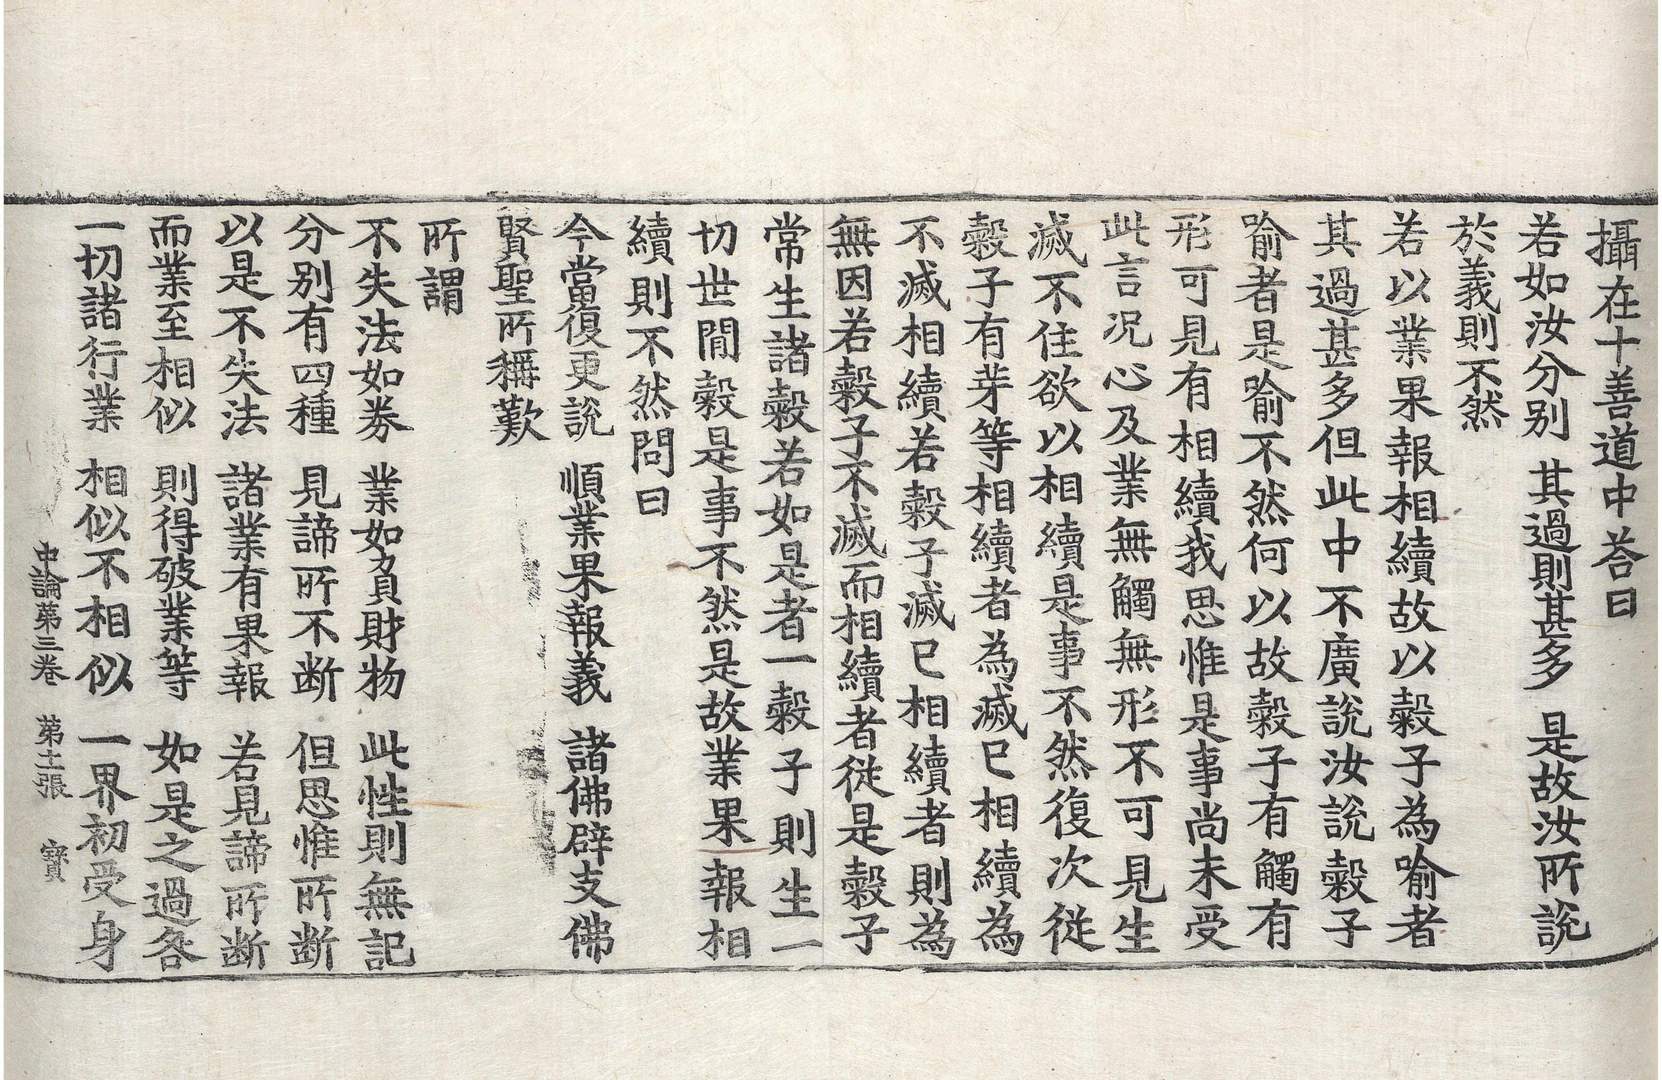 攝在十善道中荅曰
若如汝分別　其過則甚多　是故汝所說
於義則不然
若以業果報相續故以穀子為喻者
其過甚多但此中不廣說汝說穀子
喻者是喻不然何以故穀子有觸有
形可見有相續我思惟是事尚未受
此言况心及業無觸無形不可見生
滅不住欲以相續是事不然復次從
穀子有芽等相續者為滅已相續為
不滅相續若穀子滅已相續者則為
無因若穀子不滅而相續者從是穀子
常生諸穀若如是者一穀子則生一
切世閒穀是事不然是故業果報相
續則不然問曰
今當復更說　順業果報義　諸佛辟支佛
賢聖所稱歎
所謂
不失法如券　業如負財物　此性則無記
分別有四種　見諦所不断　但思惟所断
以是不失法　諸業有果報　若見諦所断
而業至相似　則得破業等　如是之過咎
一切諸行業　相似不相似　一界初受身
中論第三卷　第十一張　寳